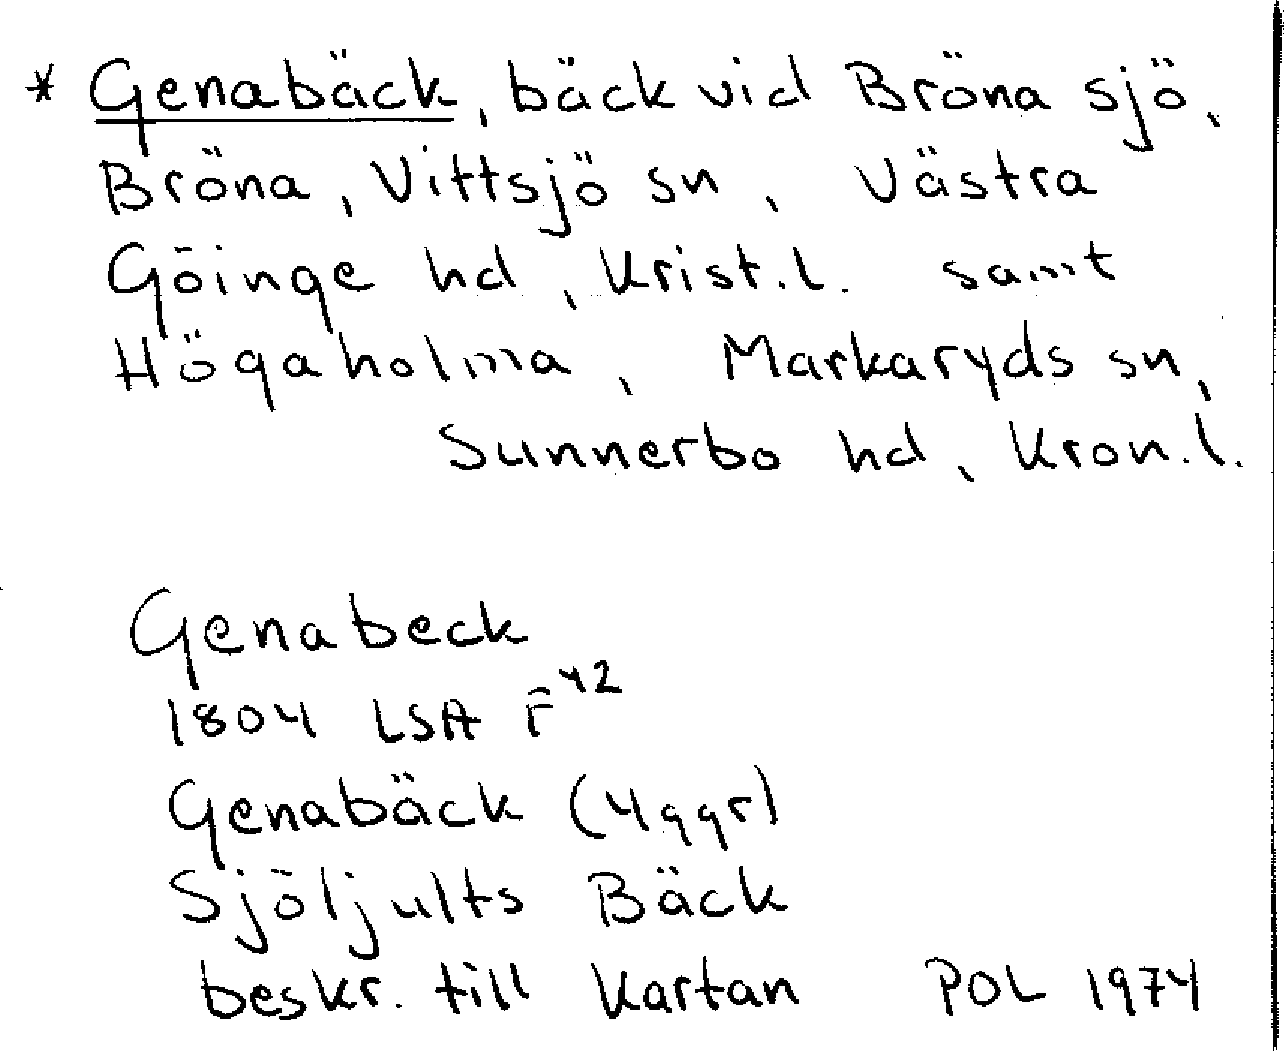 * Genabäck, bäck vid Bröna sjö,
Bröna, Vittsjö sn, Västra
Göinge hd, Krist.l. samt
Högaholma, Markaryds sn,
Sunnerbo hd, Kron.l.
Genabeck
1804 LSA F42
Genabäck (4ggr)
Sjöljults Bäck
beskr. till Kartan POL 1974